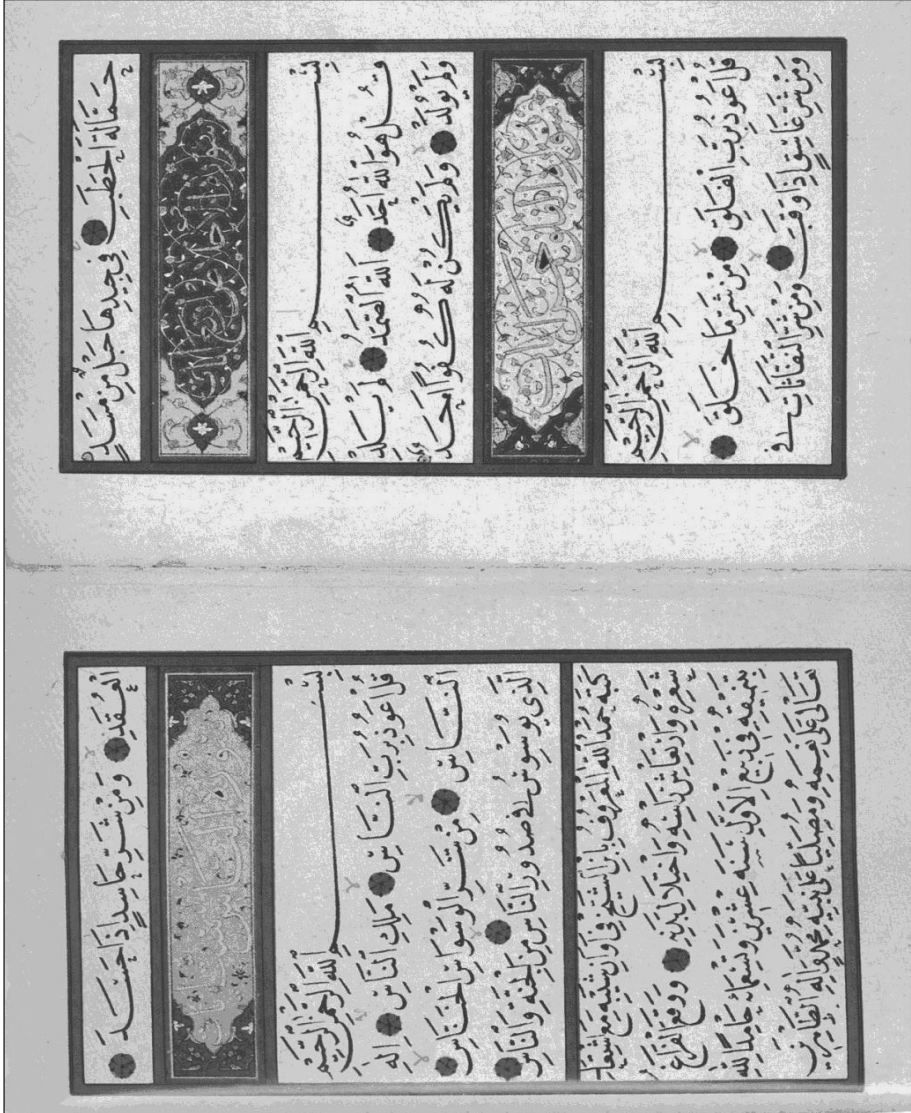 حَمَّالَةَ الْحَطَبِ فِي جِيدِهَا حَبْلٌ مِنْ مَسَدٍ
بِسْمِ اللَّهِ الرَّحْمَٰنِ الرَّحِيمِ
قُلْ هُوَ اللَّهُ أَحَدٌ اللَّهُ الصَّمَدُ لَمْ يَلِدْ
وَلَمْ يُولَدْ وَلَمْ يَكُنْ لَهُ كُفُوًا أَحَدٌ
بِسْمِ اللَّهِ الرَّحْمَٰنِ الرَّحِيمِ
قُلْ أَعُوذُ بِرَبِّ الْفَلَقِ مِنْ شَرِّ مَا خَلَقَ
وَمِنْ شَرِّ غَاسِقٍ إِذَا وَقَبَ وَمِنْ شَرِّ النَّفَّاثَاتِ فِي
الْعُقَدِ وَمِنْ شَرِّ حَاسِدٍ إِذَا حَسَدَ
بِسْمِ اللَّهِ الرَّحْمَٰنِ الرَّحِيمِ
قُلْ أَعُوذُ بِرَبِّ النَّاسِ مَلِكِ النَّاسِ إِلَٰهِ
النَّاسِ مِنْ شَرِّ الْوَسْوَاسِ الْخَنَّاسِ
الَّذِي يُوَسْوِسُ فِي صُدُورِ النَّاسِ مِنَ الْجِنَّةِ وَالنَّاسِ
كتبه حمد الله المعروف بابن الشيخ في اوان شيبه مع
شعره وارتعاش واختلال ووقع الفراغ
في ربيع الاول سنة عشرين وتسعمائة حامدا لله
تعالى على نعمه ومصليا على نبيه محمد وآله الطاهرين